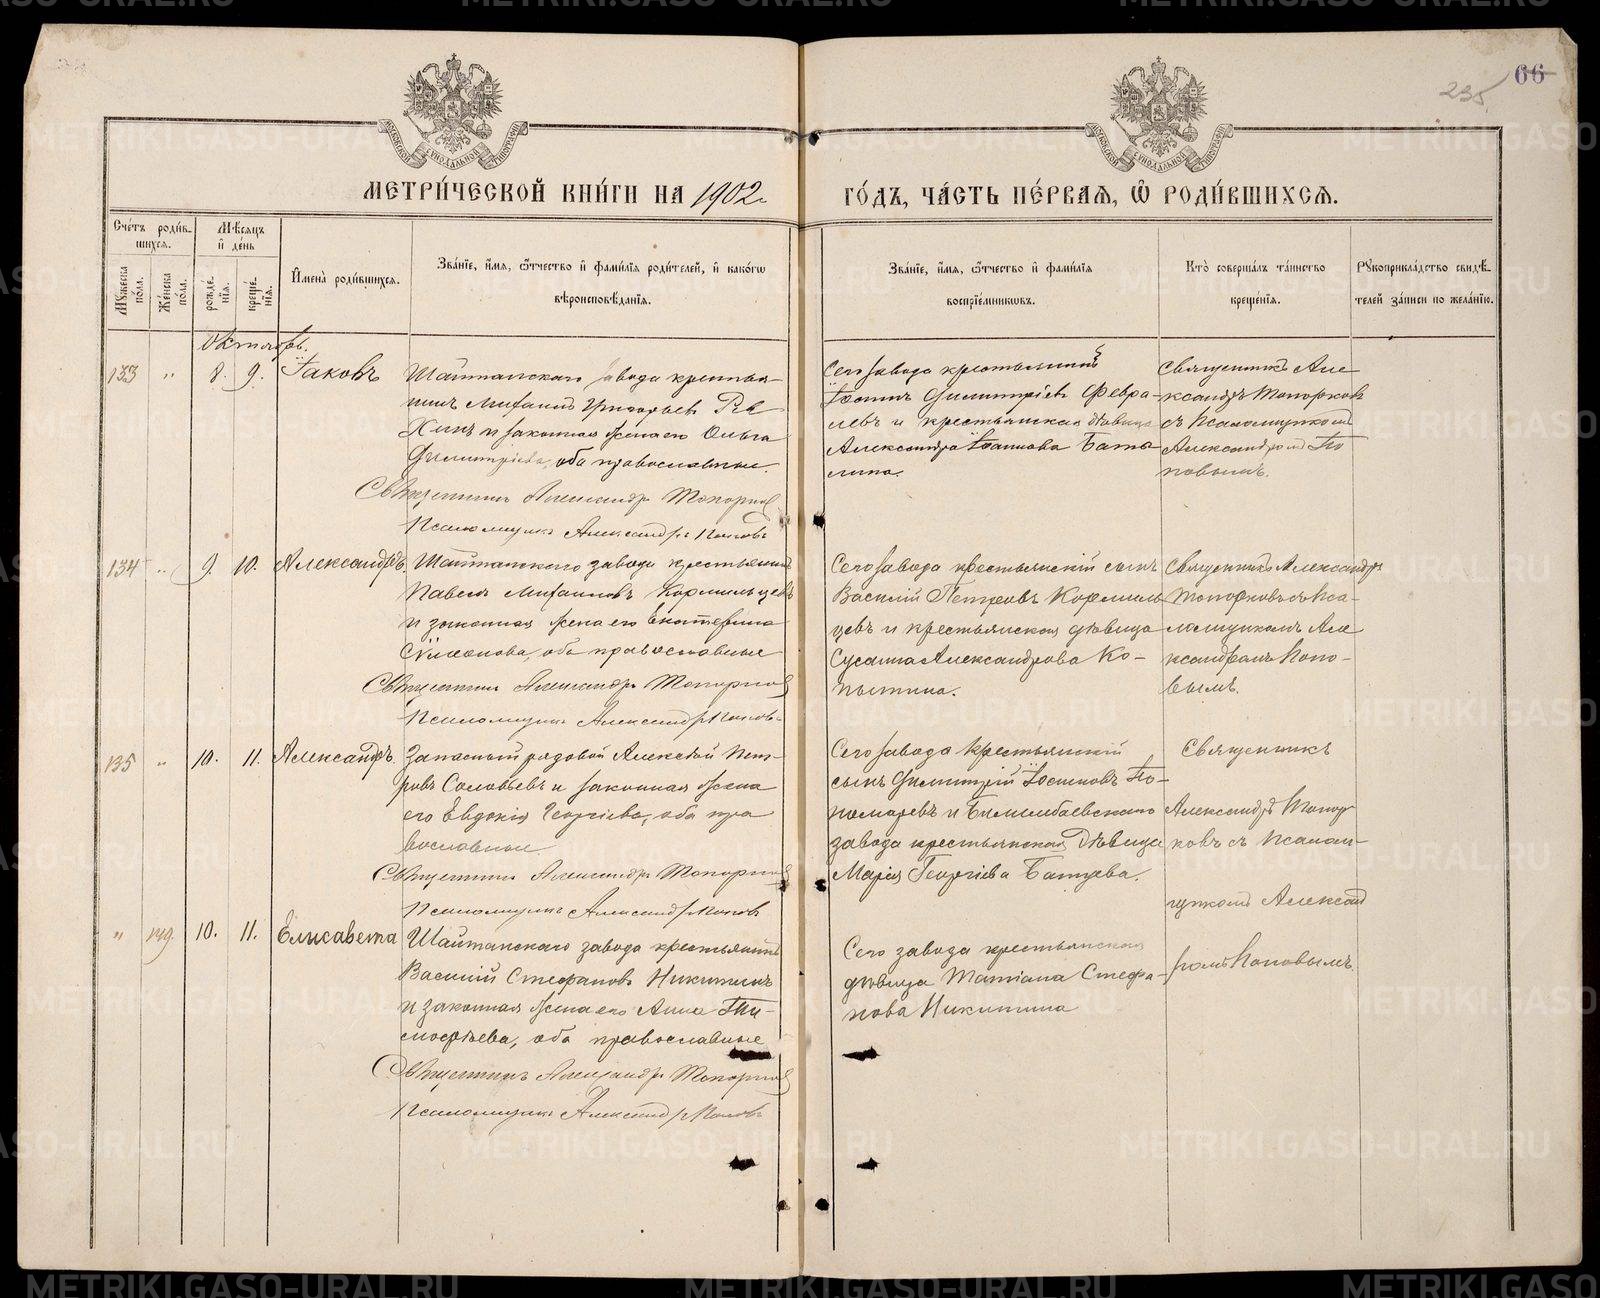 66
235
МОСКОВСКОЙ СѴНОДАЛЬНОЙ ТИПОГРАФІИ
МОСКОВСКОЙ СѴНОДАЛЬНОЙ ТИПОГРАФІИ
МЕТРИ́ЧЕСКОЙ КНИ́ГИ НА 1902 г.
ГО́ДЪ, ЧА́СТЬ ПЕ́РВАЯ, Ѡ҆ РОДИ́ВШИХСЯ.
Сче́тъ роди́в-
шихся.
Мꙋ́жеска по́ла.
Же́нска по́ла.
Мѣ́сяцъ
и҆ де́нь
рожде́-нїя.
креще́-нїя.
И҆мена̀ роди́вшихся.
Зва́нїе, и҆́мя, ѻ҆́тчество и҆ фами́лїя роди́телей, и҆ како́гѡ
вѣроисповѣ́данїя.
Зва́нїе, и҆́мя, ѻ҆́тчество и҆ фами́лїя
воспрїе́мникѡвъ.
Кто̀ соверша́лъ та́инство
креще́нїя.
Рꙋкоприкла́дство свидѣ́-
телей за́писи по жела́нїю.
Октябрь.
133 „ 8. 9. Іаковъ
Шайтанскаго завода крестья-
нинъ Михаилъ Григорьевъ
и законная жена его Ольга
Димитріева, оба православные.
Священникъ Александръ Топорковъ
Псаломщикъ Александръ Поповъ
Сего завода крестьянинъ
Іоаннъ Димитріевъ Февра-
левъ и крестьянская дѣвица
Александра Іоаннова Бата-
лина.
Священникъ Але
ксандръ Топорковъ
съ Псаломщикомъ
Александромъ По
повымъ.
134 „ 9. 10. Александръ.
Шайтанскаго завода крестьянинъ
Павелъ Михаиловъ Кормильцевъ
и законная жена его Екатерина
Симеонова, оба православные
Священникъ Александръ Топорковъ
Псаломщикъ Александръ Поповъ
Сего завода крестьянскій сынъ
Василій Петровъ Кормиль
цевъ и крестьянская дѣвица
Сусанна Александрова Ко-
пытина.
Священникъ Александръ
Топорковъ съ Пса-
ломщикомъ Але
ксандромъ Попо-
вымъ.
135 „ 10. 11. Александръ.
Запасный рядовой Алексѣй Пет-
ровъ Соловьевъ и законная жена
его Евдокія Георгіева, оба пра
вославные.
Священникъ Александръ Топорковъ
Псаломщикъ Александръ Поповъ
Сего завода крестьянскій
сынъ Димитрій Іоанновъ По-
номаревъ и Билимбаевскаго
завода крестьянская дѣвица
Марія Георгіева Балуева.
Священникъ
Александръ Топор
ковъ съ Псалом-
щикомъ Александ
ромъ Поповымъ.
„ 149. 10. 11. Елисавета
Шайтанскаго завода крестьянинъ
Василій Стефановъ Никитинъ
и законная жена его Анна Ти-
мофѣева, оба православные
Священникъ Александръ Топорковъ
Псаломщикъ Александръ Поповъ
Сего завода крестьянская
дѣвица Татіана Стефа-
нова Никитина
METRIKI.GASO-URAL.RU